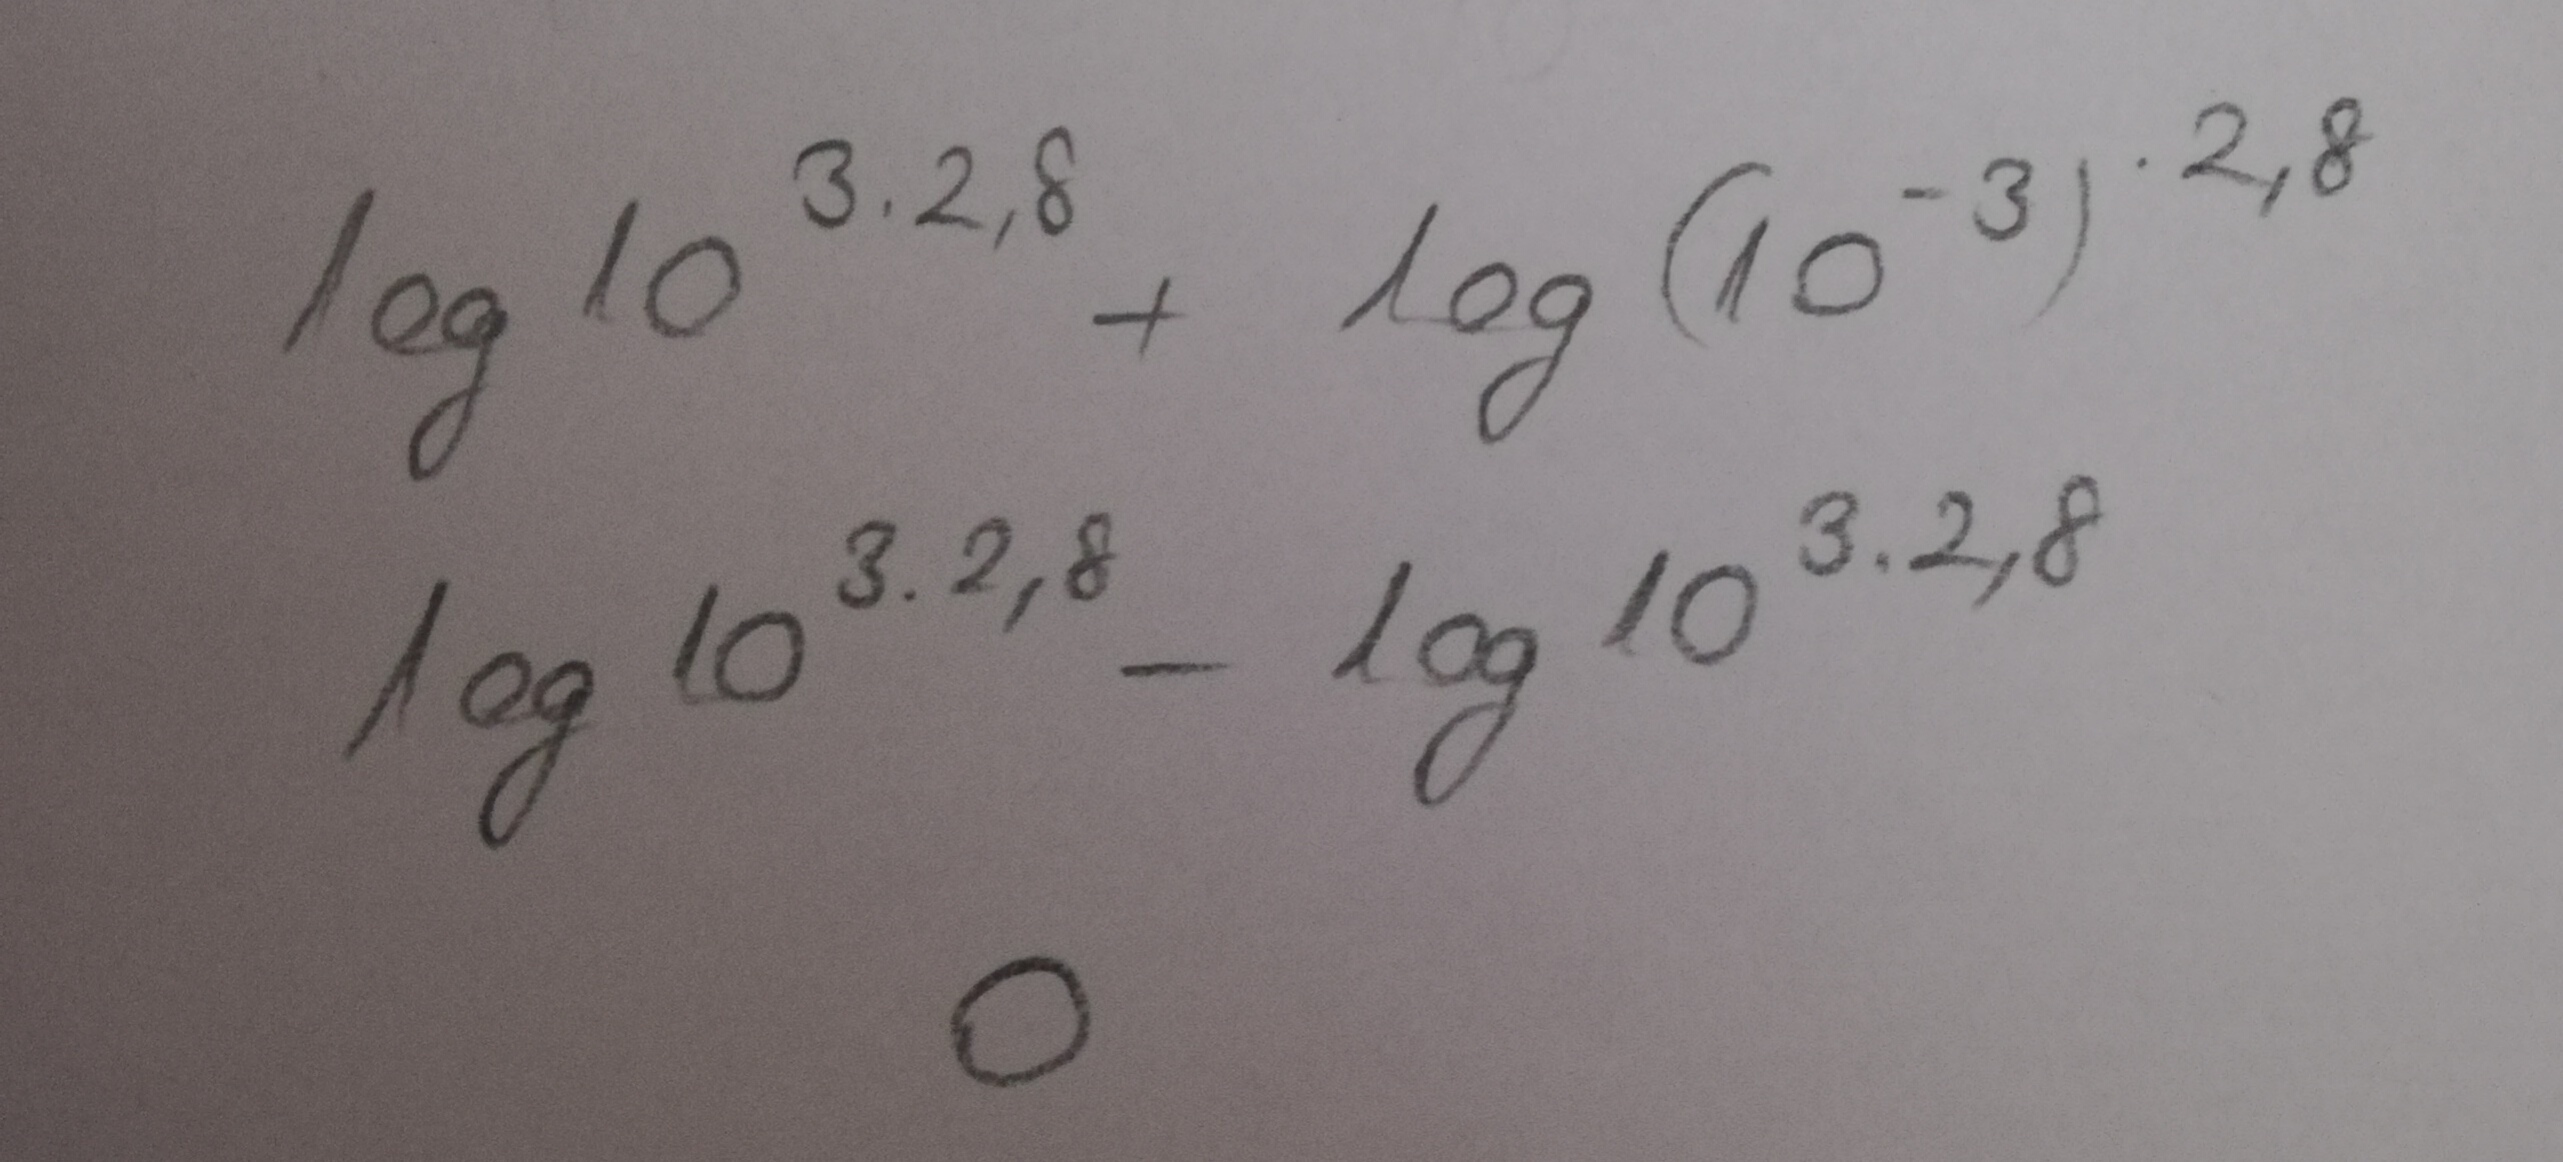 log 10^{3.2,8} + log (10^{-3})^{·2,8}
log 10^{3.2,8} - log 10^{3.2,8}
0